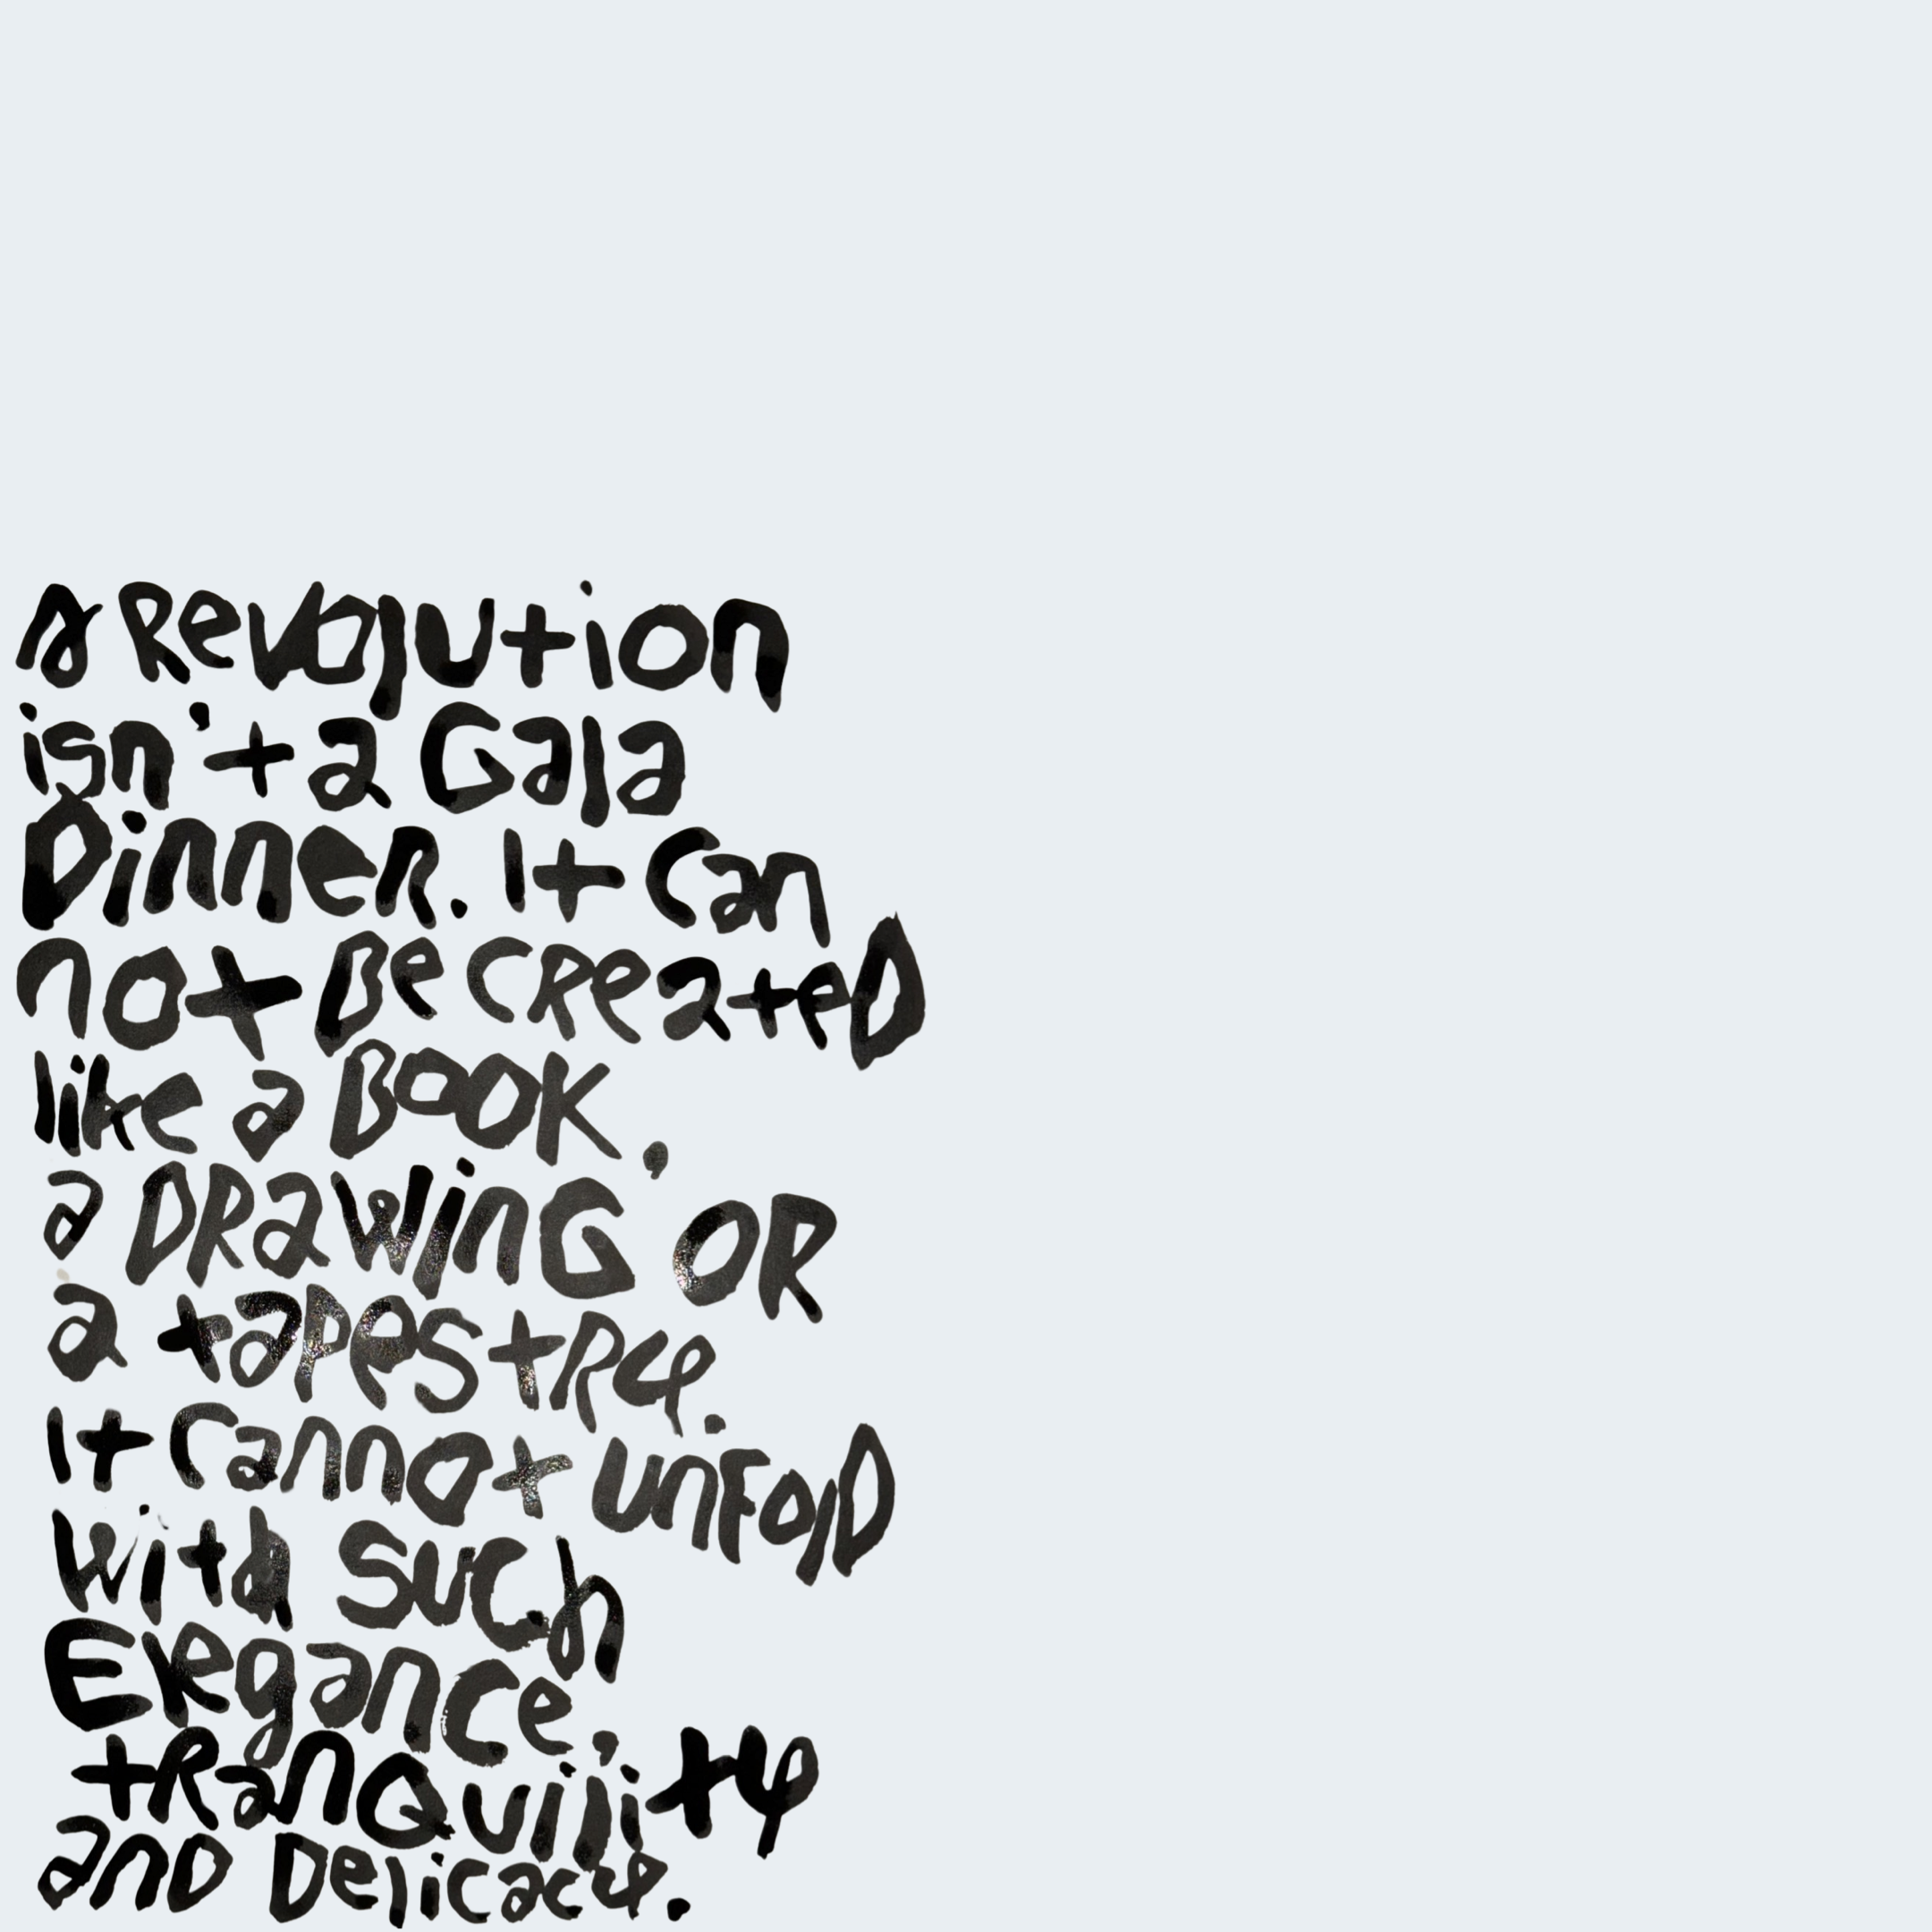 a Revolution
isn't a Gala
Dinner. It can
not Be CReateD
like a BOOK,
a DRawinG OR
a tapestRy.
It cannot unFolD
with such
Elegance,
tRanQuility
anD Delicacy.